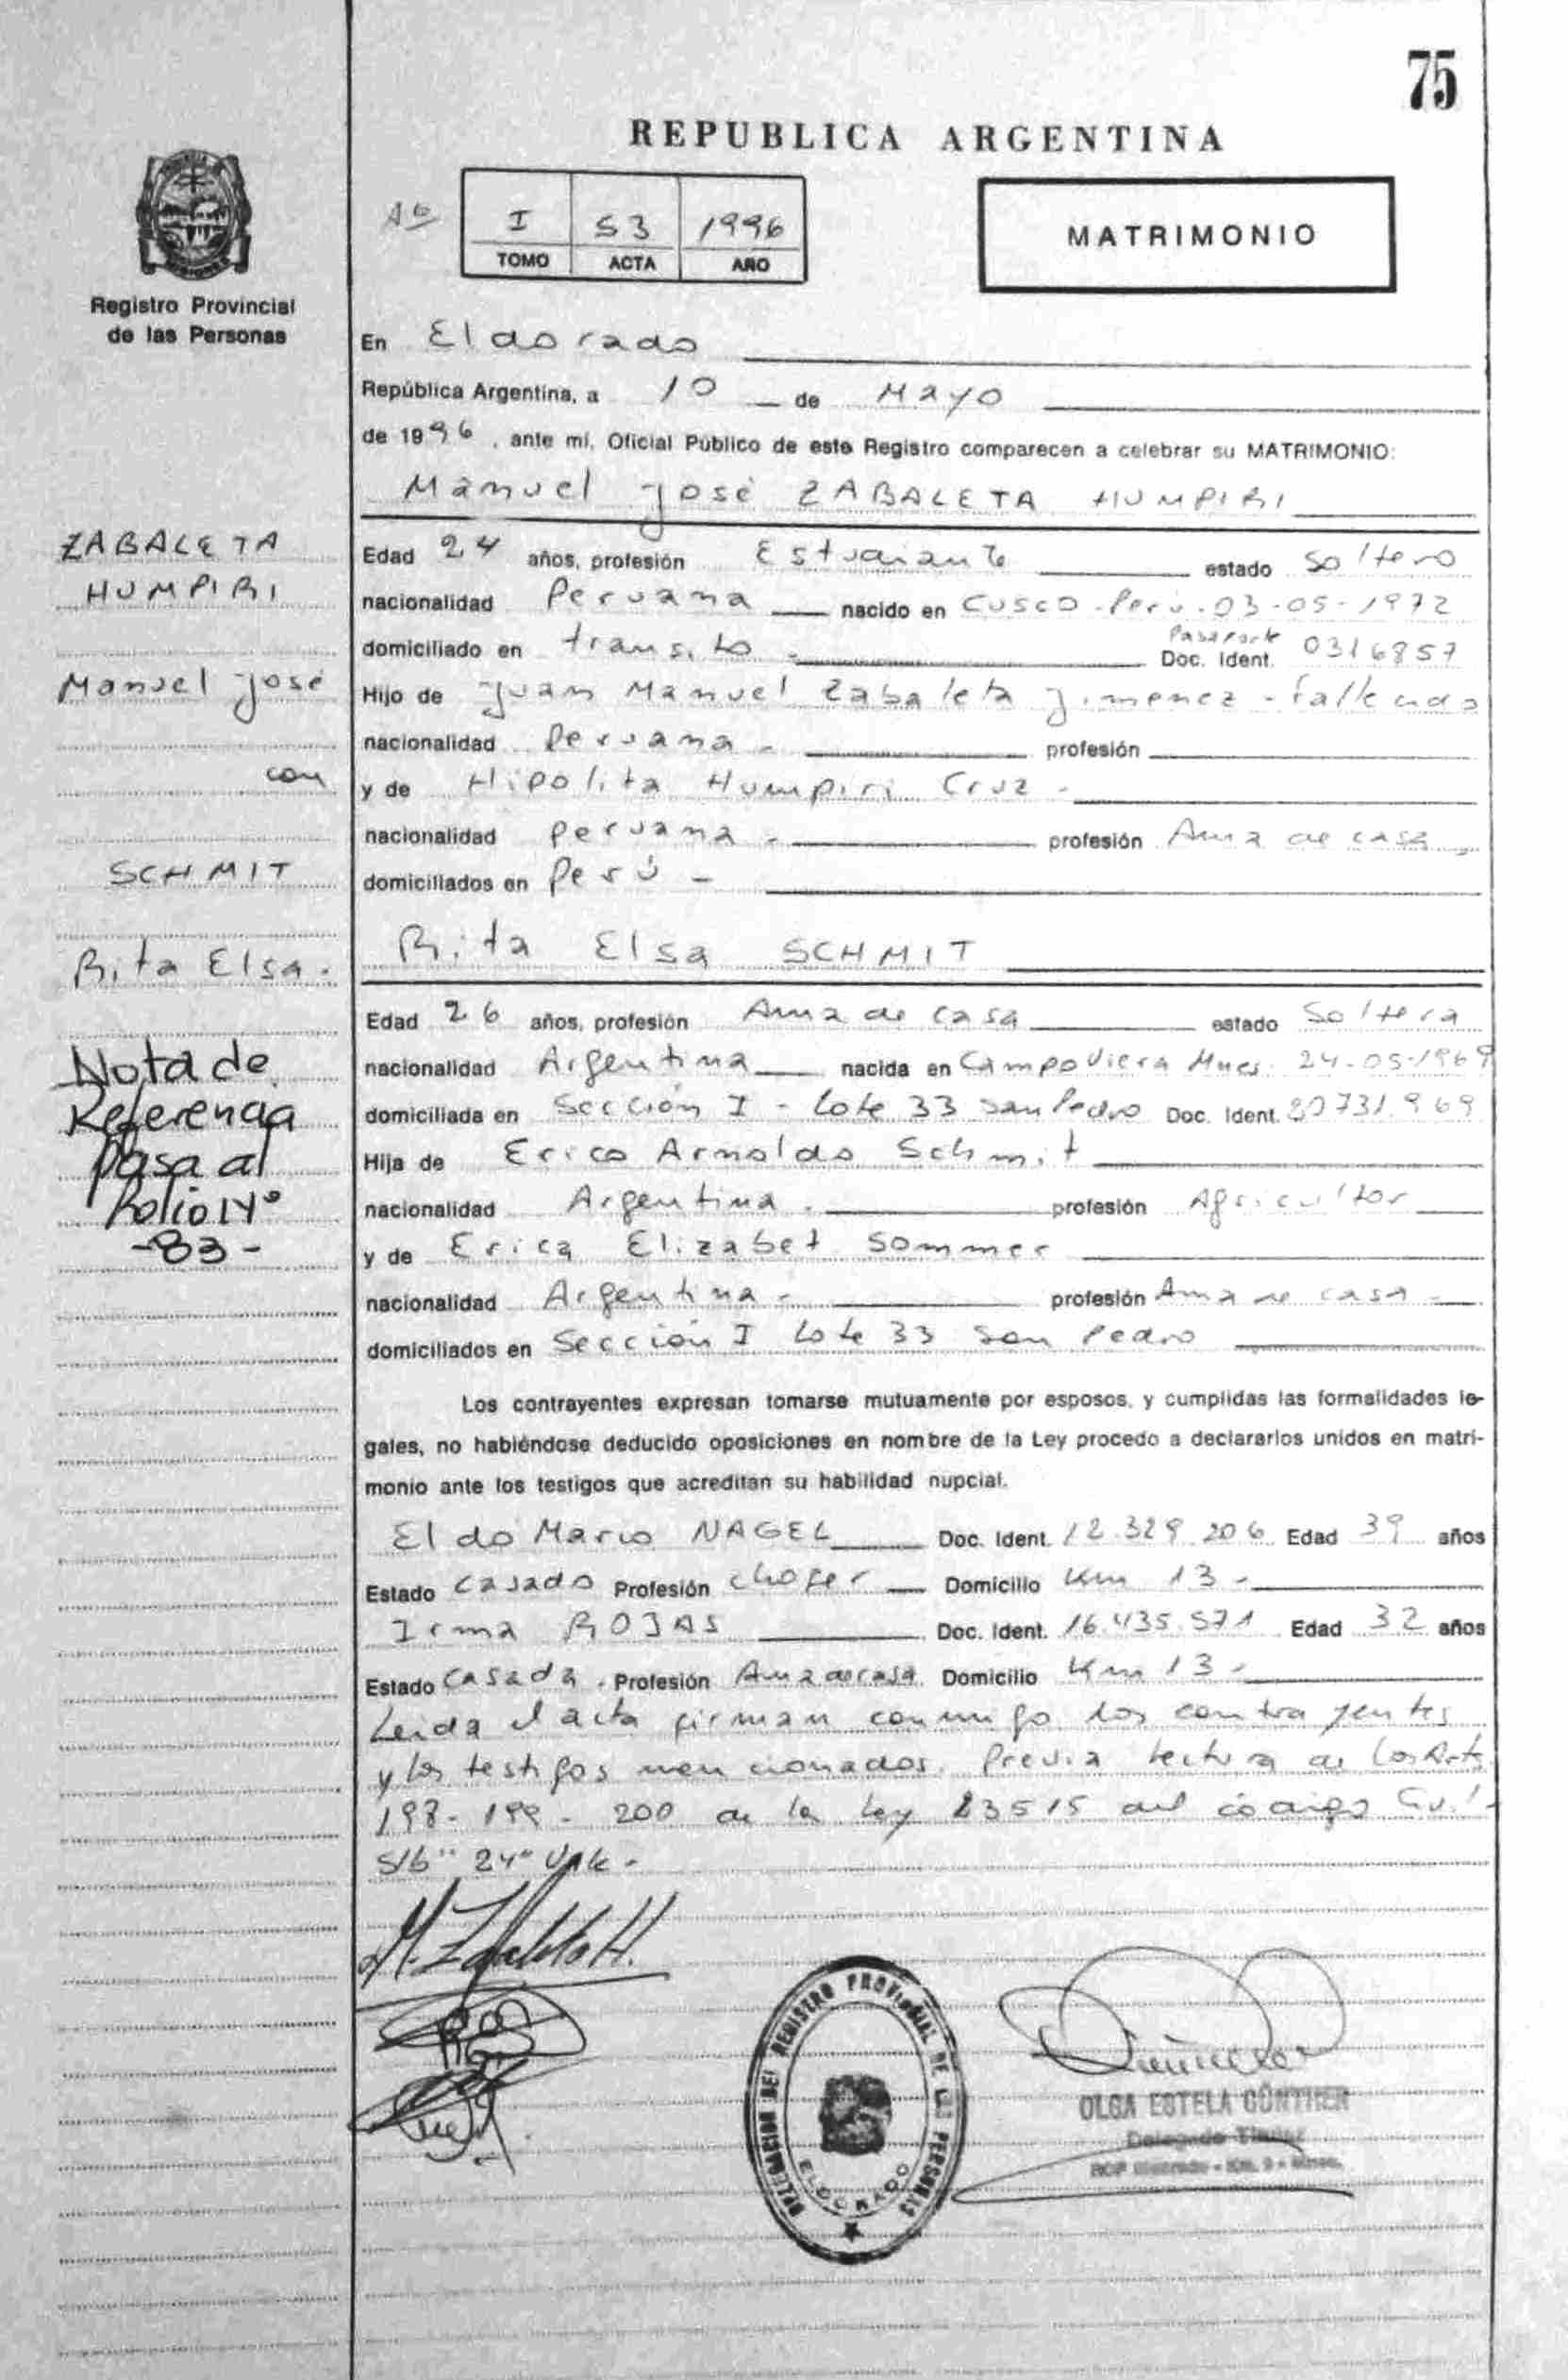 75
REPUBLICA ARGENTINA
I 53 1996
TOMO ACTA AÑO
MATRIMONIO
Registro Provincial
de las Personas
En Eldorado
República Argentina, a 10 de Mayo
de 1996, ante mí, Oficial Público de este Registro comparecen a celebrar su MATRIMONIO:
Manuel José ZABALETA HUMPIRI
ZABALETA
HUMPIRI
Manuel José
con
SCHMIT
Rita Elsa.
Nota de
Referencia
Pasa al
Folio Nº
-83-
Edad 24 años, profesión Estudiante estado Soltero
nacionalidad Peruana nacido en Cusco-Perú-03-05-1972
domiciliado en transito Pasaporte Doc. Ident. 0316857
Hijo de Juan Manuel Zabaleta Jimenez - fallecido
nacionalidad Peruana - profesión
y de Hipolita Humpiri Cruz -
nacionalidad peruana - profesión Ama de casa
domiciliados en Perú -
Rita Elsa SCHMIT
Edad 26 años, profesión Ama de casa estado Soltera
nacionalidad Argentina nacida en Campo Viera Mnes. 24-05-1969
domiciliada en Sección I - Lote 33 San Pedro Doc. Ident. 20731.969
Hija de Erico Arnoldo Schmit
nacionalidad Argentina. profesión Agricultor
y de Erica Elizabet Sommer
nacionalidad Argentina - profesión Ama de casa -
domiciliados en Sección I Lote 33 San Pedro
Los contrayentes expresan tomarse mutuamente por esposos, y cumplidas las formalidades le-
gales, no habiéndose deducido oposiciones en nombre de la Ley procedo a declararlos unidos en matri-
monio ante los testigos que acreditan su habilidad nupcial.
Eldo Mario NAGEL Doc. Ident. 12.329.206 Edad 39 años
Estado Casado Profesión chofer Domicilio Km 13 -
Irma ROJAS Doc. Ident. 16.435.571 Edad 32 años
Estado Casada. Profesión Ama de casa Domicilio Km 13 -
Leida el acta firman conmigo los contrayentes
y los testigos mencionados. Previa lectura de los Arts
198-199-200 de la Ley 23515 del código Civil-
S/b" 24" Vale -
M. Zabaleta H.
DELEGACION DEL REGISTRO PROVINCIAL DE LAS PERSONAS
ELDORADO
OLGA ESTELA GÜNTHER
Delegada Titular
RCP Eldorado - Km. 9 - Mnes.